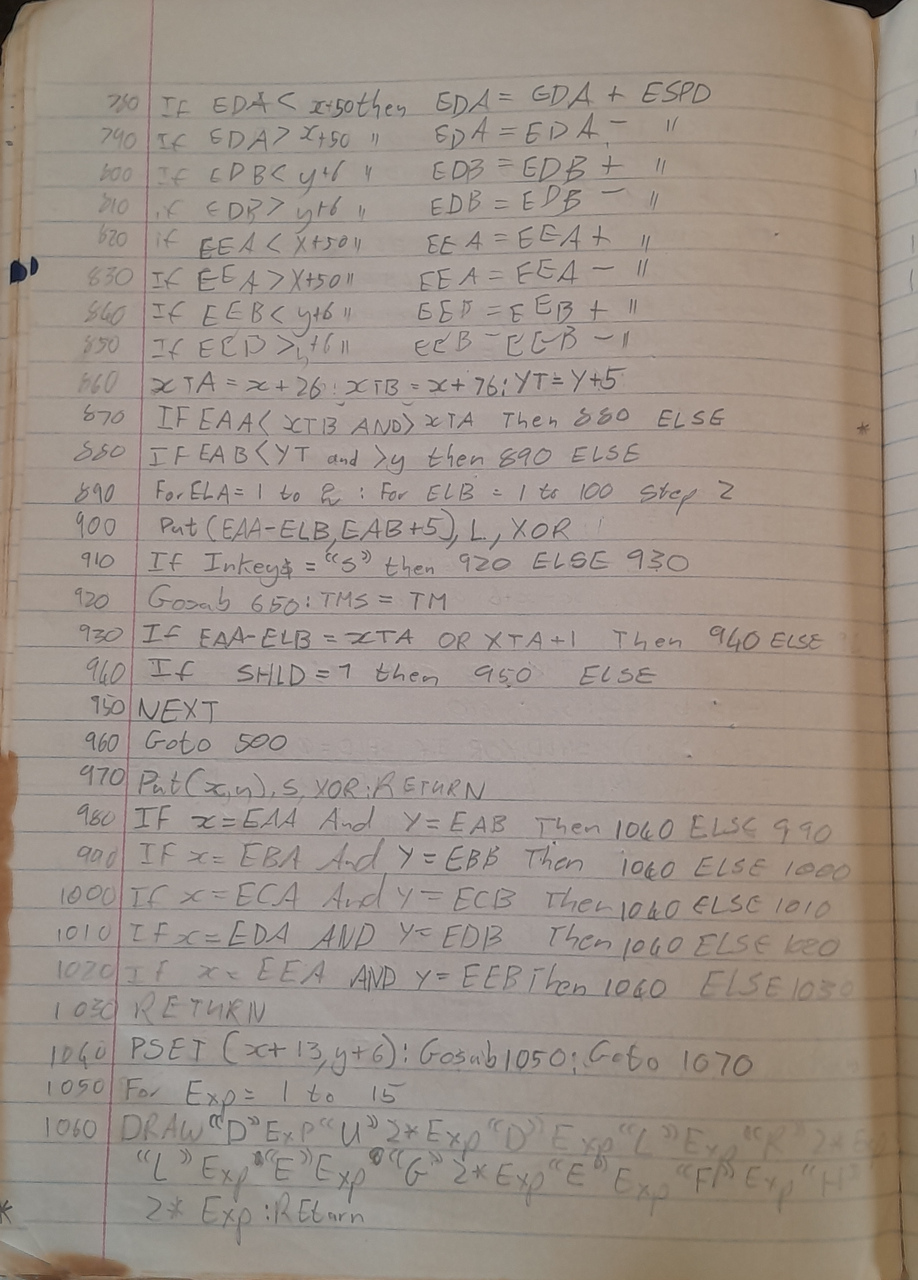 780 If EDA < x+50 then EDA = EDA + ESPD
790 If EDA > x+50 " EDA = EDA - "
800 If EDB < y+6 " EDB = EDB + "
810 if EDB > y+6 " EDB = EDB - "
820 if EEA < x+50 " EEA = EEA + "
830 If EEA > x+50 " EEA = EEA - "
840 If EEB < y+6 " EEB = EEB + "
850 If EEB > y+6 " EEB = EEB - "
860 xTA = x+26 : xTB = x+76 : YT = Y+5
870 IF EAA < xTB AND > xTA Then 880 ELSE *
880 IF EAB < YT and > y then 890 ELSE
890 For ELA = 1 to 2 : For ELB = 1 to 100 Step 2
900 Put (EAA-ELB, EAB+5), L, XOR
910 If Inkey$ = "S" then 920 ELSE 930
920 Gosub 650 : TMS = TM
930 If EAA-ELB = xTA OR XTA+1 Then 940 ELSE
940 If SHLD = 1 then 950 ELSE
950 NEXT
960 Goto 500
970 Put (x,y), S, XOR : RETURN
980 IF x = EAA And Y = EAB Then 1040 ELSE 990
990 IF x = EBA And Y = EBB Then 1040 ELSE 1000
1000 If x = ECA And Y = ECB Then 1040 ELSE 1010
1010 If x = EDA AND Y = EDB Then 1040 ELSE 1020
1020 If x = EEA AND y = EEB Then 1040 ELSE 1030
1030 RETURN
1040 PSET (x+13, y+6) : Gosub 1050 : Goto 1070
1050 For Exp = 1 to 15
1060 DRAW "D" Exp "U" 2* Exp "D" Exp "L" Exp "R" 2* Exp
"L" Exp "E" Exp "G" 2* Exp "E" Exp "F" Exp "H"
* 2* Exp : REturn